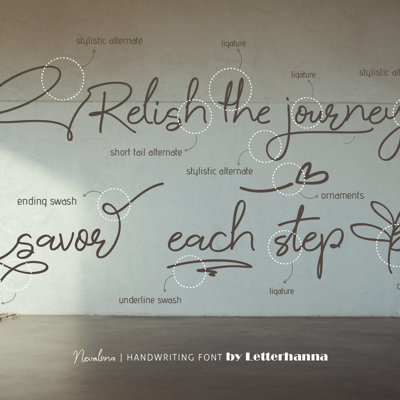 stylistic alternate
ligature
ligature
Relish the journey
short tail alternate
stylistic alternate
ornaments
ending swash
savor each step
underline swash
ligature
Nevalona | HANDWRITING FONT by Letterhanna